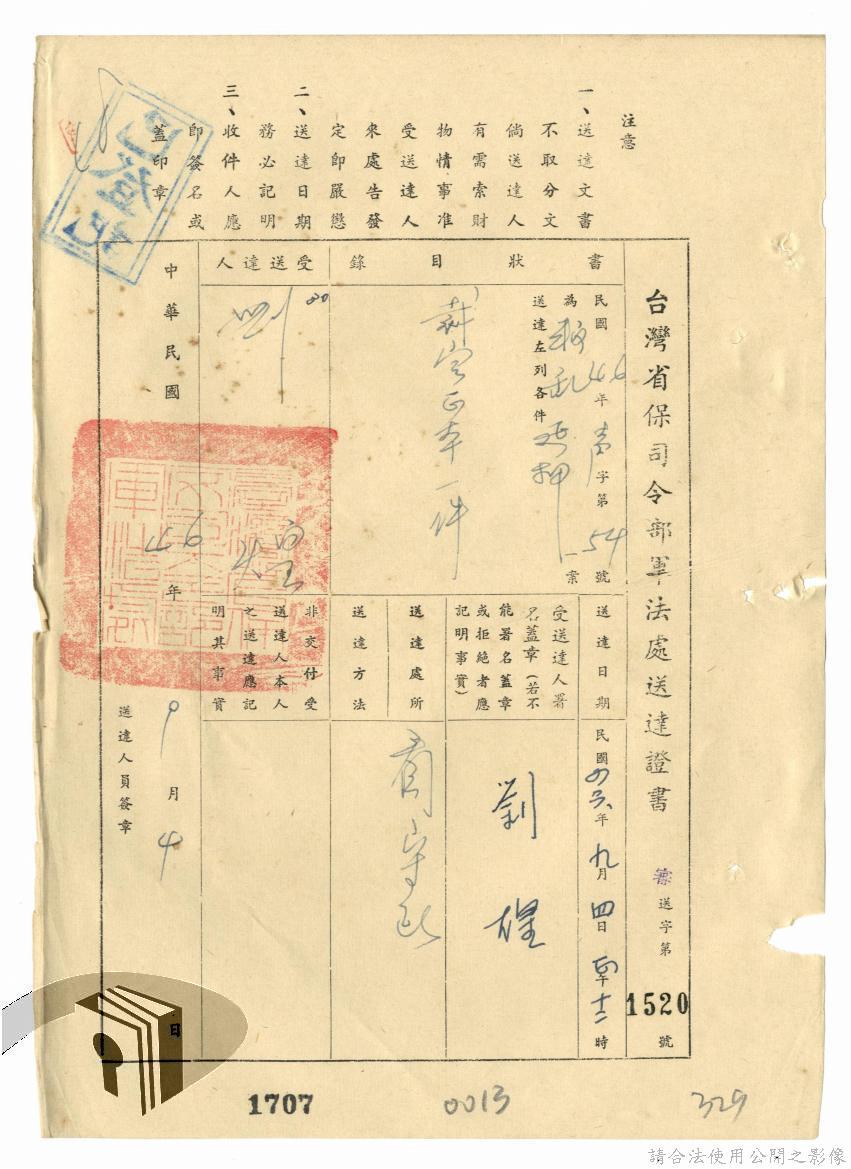 注意
一、送達文書
不取分文
倘送達人
有需索財
物情事准
受送達人
來處告發
定即嚴懲
二、送達日期
務必記明
三、收件人應
即簽名或
蓋印章
台灣省保司令部軍法處送達證書
送字第1520號
書狀目錄
民國46年字第54號
為叛亂延押一案
送達左列各件
裁定正本一件
受送達人
劉
中華民國46年9月4日
送達日期
民國四六年九月四日午十二時
受送達人署
名蓋章(若不
能署名蓋章
或拒絕者應
記明事實)
劉煌
送達處所
看守所
送達方法
非交付受
送達人本人
之送達應記
明其事實
送達人員簽章
已登記
1707
0013
329
請合法使用公開之影像